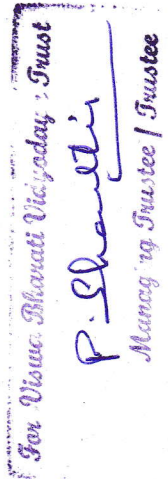 For Viswa Bharati Vidyoday Trust
P. Shanthi
Managing Trustee / Trustee